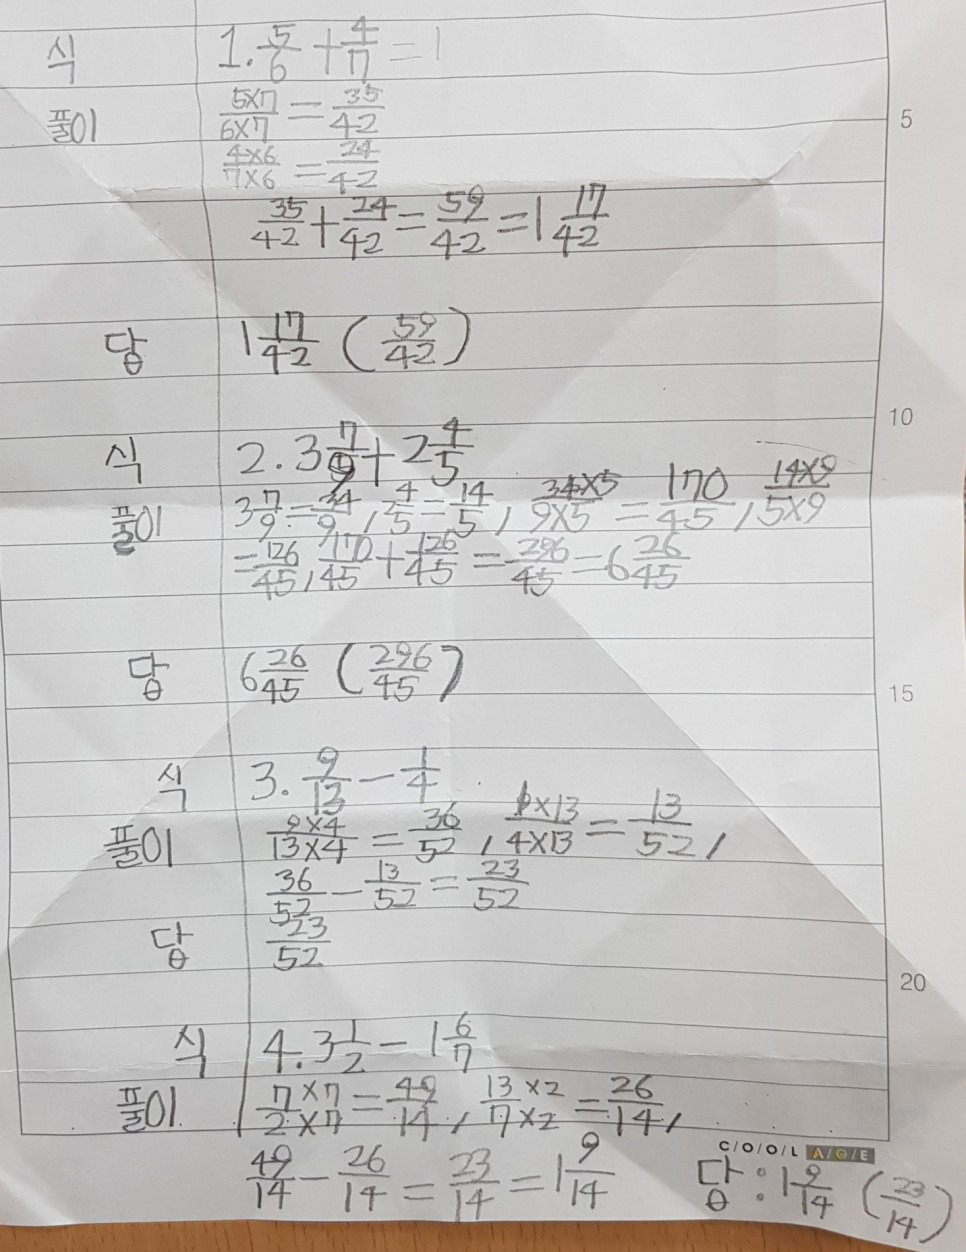 식 1. 5/6 + 4/7 = 1
풀이 5×7/6×7 = 35/42
5
4×6/7×6 = 24/42
35/42 + 24/42 = 59/42 = 1 17/42
답 1 17/42 (59/42)
10
식 2. 3 7/9 + 2 4/5
풀이 3 7/9 = 34/9, 2 4/5 = 14/5, 34×5/9×5 = 170/45, 14×9/5×9
= 126/45, 170/45 + 126/45 = 296/45 = 6 26/45
답 6 26/45 (296/45)
15
식 3. 9/13 - 1/4
풀이 9×4/13×4 = 36/52, 1×13/4×13 = 13/52,
36/52 - 13/52 = 23/52
답 23/52
20
식 4. 3 1/2 - 1 6/7
풀이 7×7/2×7 = 49/14, 13×2/7×2 = 26/14,
C/O/O/L A/G/E
49/14 - 26/14 = 23/14 = 1 9/14 답: 1 9/14 (23/14)